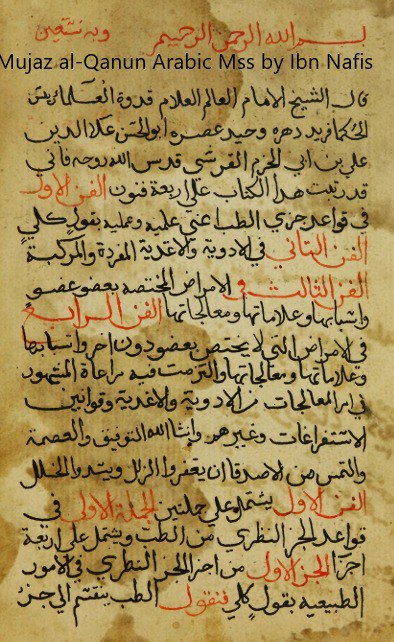 بسم الله الرحمن الرحيم وبه نستعين
Mujaz al-Qanun Arabic Mss by Ibn Nafis
قال الشيخ الامام العالم العلام قدوة العلما رئيس
الحكما فريد دهره وحيد عصره ابوالحسن علا الدين
علي بن ابي الحزم القرشي قدس الله روحه فاني
قد رتبت هذا الكتاب على اربعة فنون الفن الاول
في قواعد جزي الطب اعني علميه وعمليه بقول كلي
الفن الثاني في الادوية والاغذية المفردة والمركبة
الفن الثالث في الامراض المختصه بعضو عضو
واسبابها وعلاماتها ومعالجاتها الفن الرابع
في الامراض التي لا يختص بعضو دون اخر واسبابها
وعلاماتها ومعالجاتها والتزمت فيه مراعاة المشهور
في امر المعالجات من الادوية والاغذية وقوانين
الاستفراغات وغيرهم وانشا الله التوفيق والعصمة
والتمس من الاصدقا ان يغفروا الزلل ويسدوا الخلل
الفن الاول يشتمل على جملتين الجملة الاولى في
قواعد الجز النظري من الطب ويشتمل على اربعة
اجزا الجز الاول من اجزا الجز النظري في الامور
الطبيعيه بقول كلي فنقول الطب ينقسم الى جز